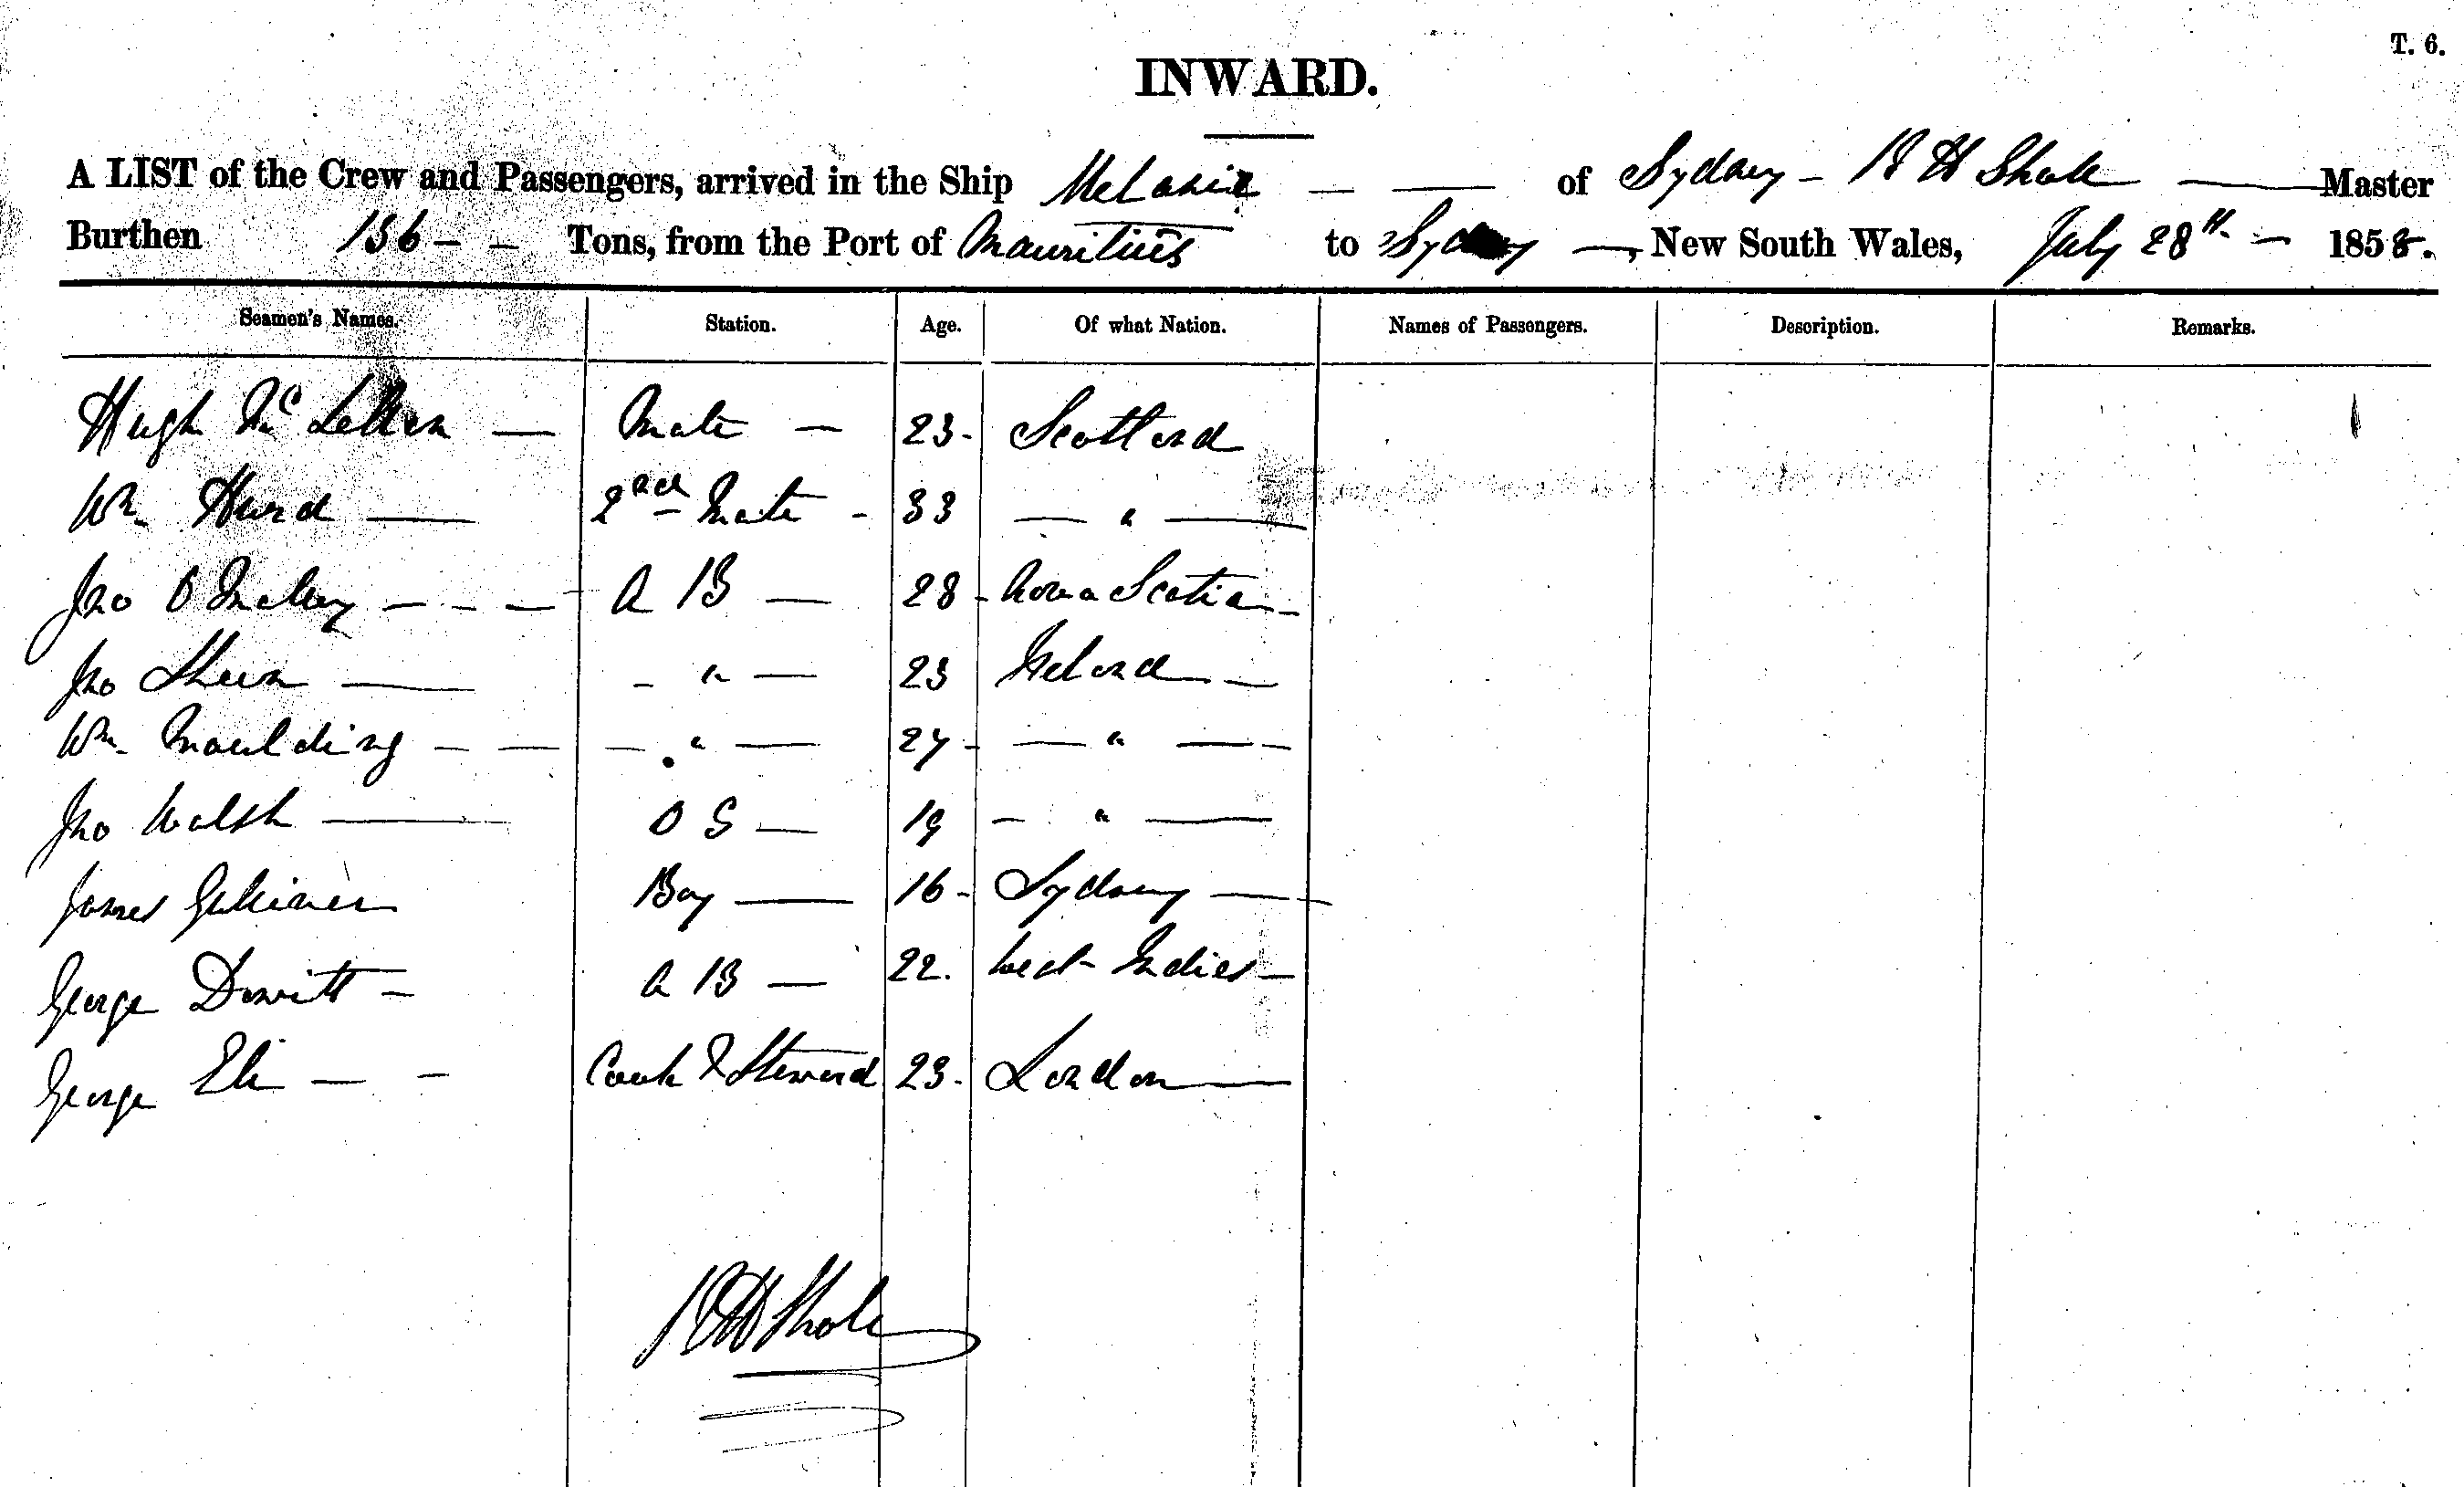 T. 6.
INWARD.
A LIST of the Crew and Passengers, arrived in the Ship Melanie of Sydney - R H Master
Burthen 136 Tons, from the Port of Mauritius to Sydney, New South Wales, July 28th 1858.
Seamen's Names. Station. Age. Of what Nation. Names of Passengers. Description. Remarks.
Hugh Mc Lellen Mate 23 Scotland
Wm Hurd 2nd Mate 33 "
Jno A B 28 Nova Scotia
Jno Sheen " 23 Ireland
Wm Moulding " 27 "
Jno Walsh O S 19 "
James Boy 16 Sydney
George Dewitt A B 22. West Indies
George Eli Cook & Steward 23. London
R H